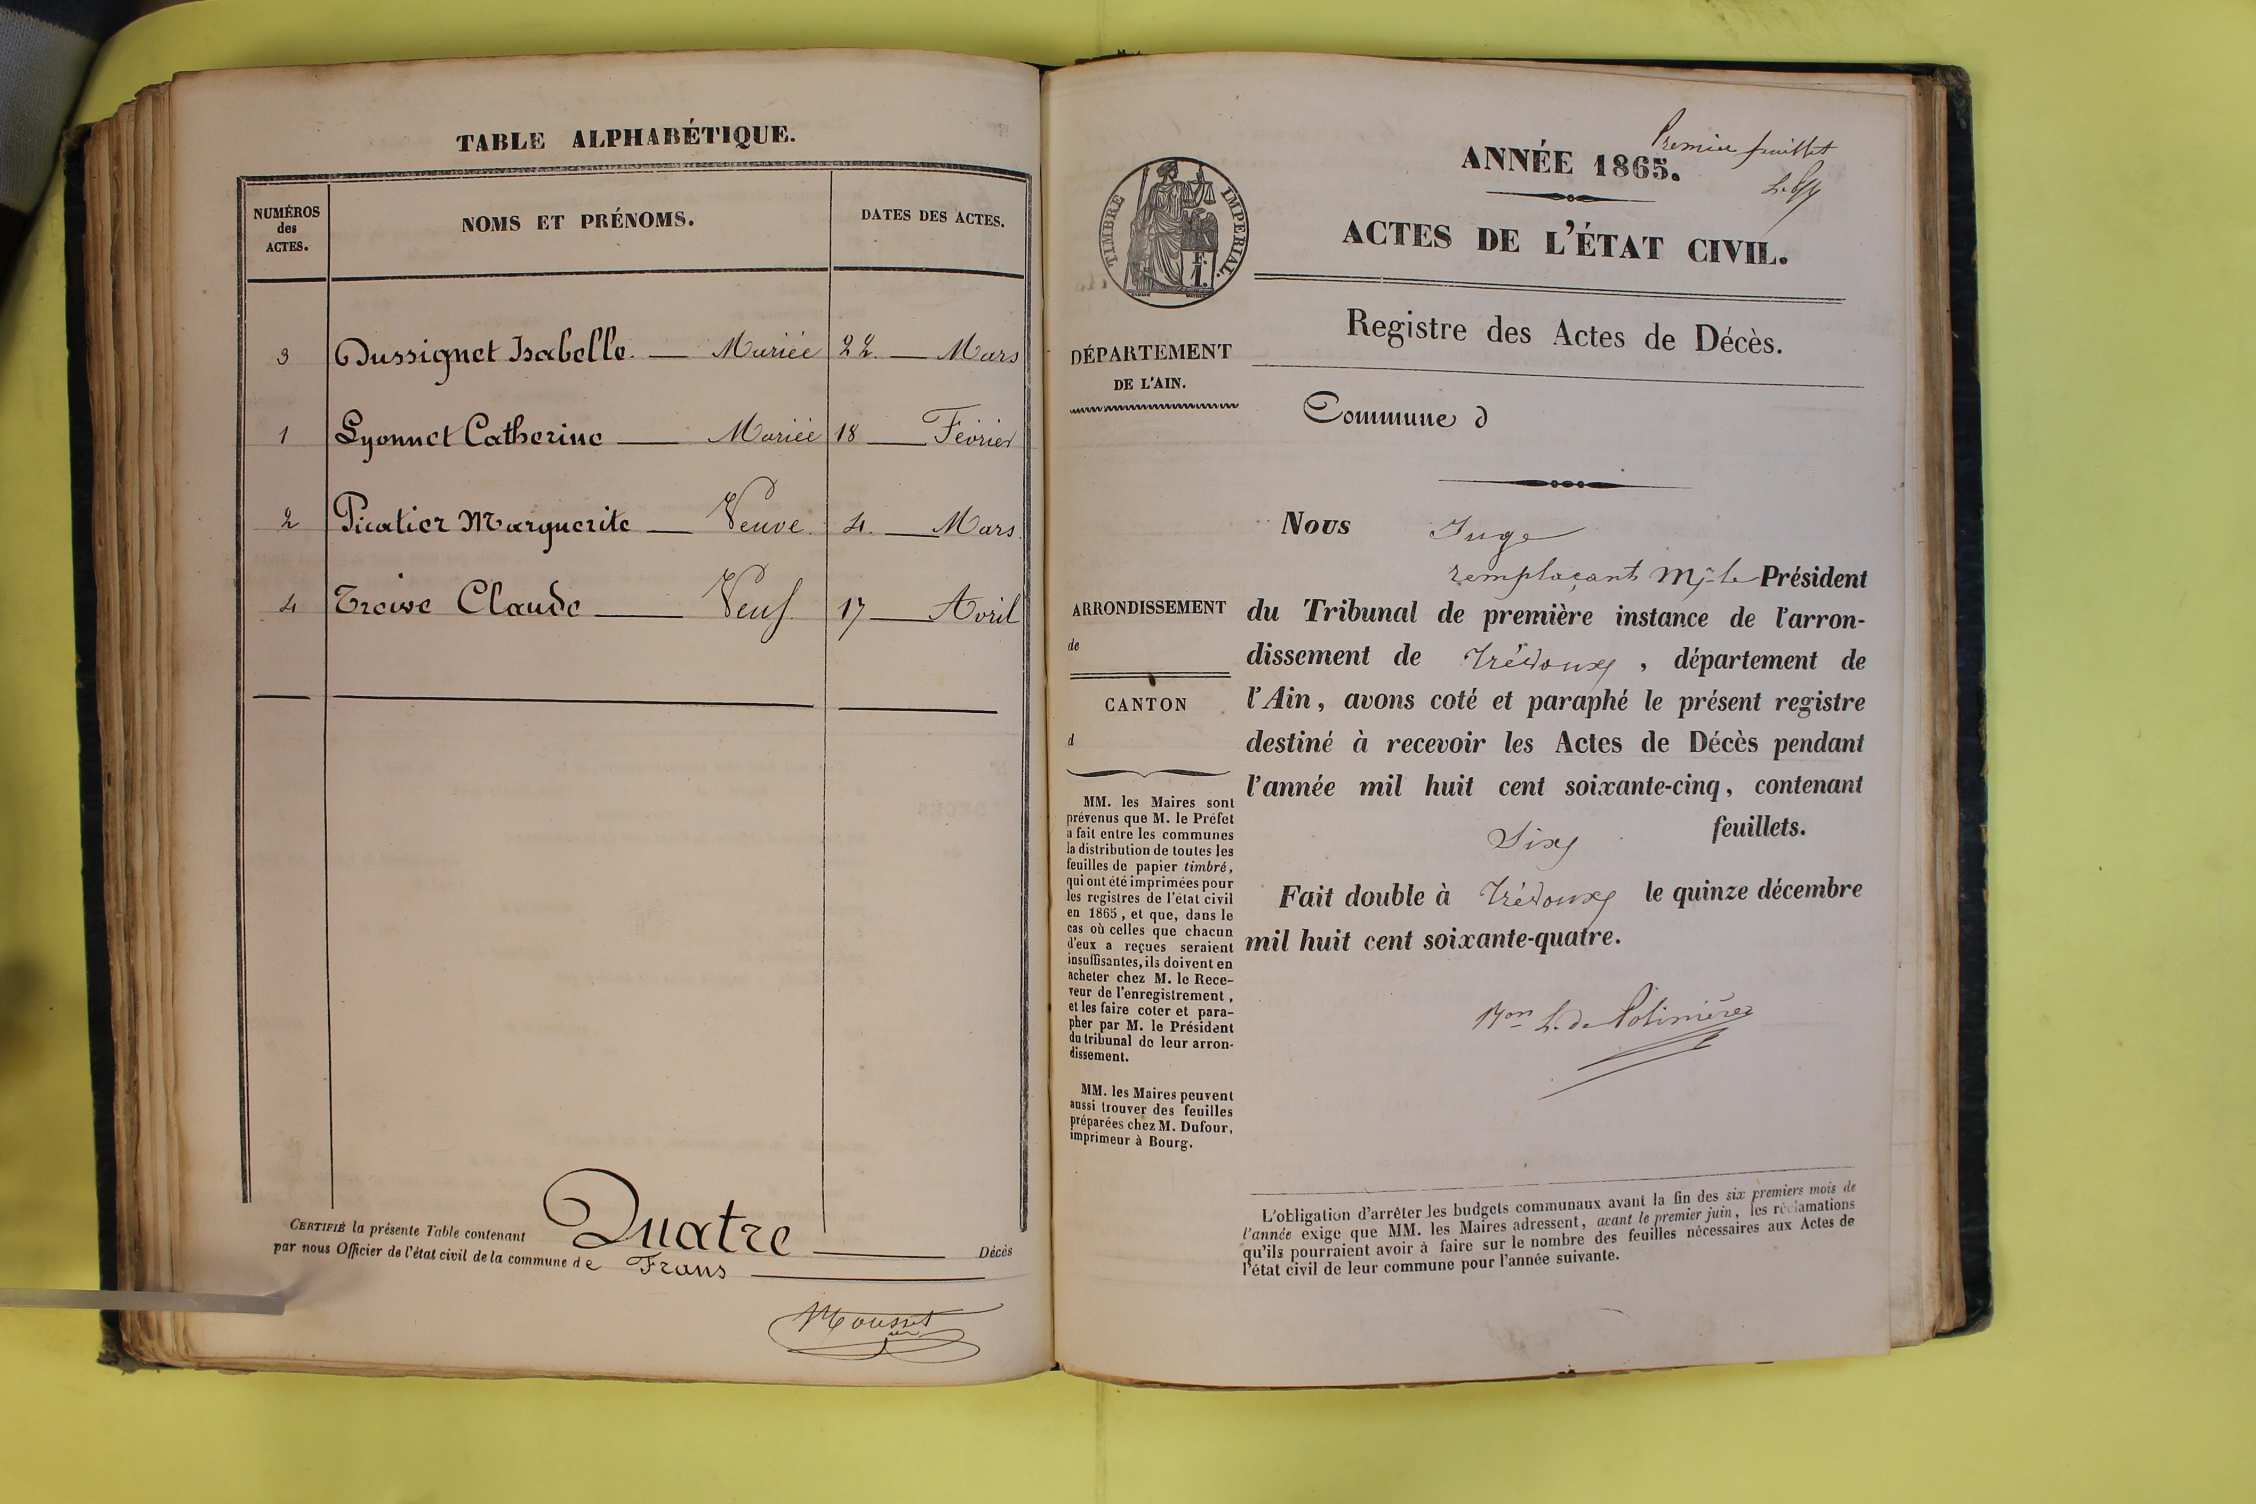 TABLE ALPHABÉTIQUE.
NUMÉROS
des
ACTES.
NOMS ET PRÉNOMS.
DATES DES ACTES.
3 Dussignet Isabelle. — Mariée 22. — Mars
1 Lyonnet Catherine — Mariée 18 — Février
2 Picatier Marguerite — Veuve. 4. — Mars.
4 Treive Claude — Veuf. 17 — Avril
CERTIFIÉ la présente Table contenant Quatre — Décès
par nous Officier de l'état civil de la commune de Frans
Mousset
Premier feuillet
ANNÉE 1865.
ACTES DE L'ÉTAT CIVIL.
TIMBRE IMPERIAL.
F.
1.
Registre des Actes de Décès.
DÉPARTEMENT
DE L'AIN.
Commune d
ARRONDISSEMENT
de
CANTON
d
MM. les Maires sont
prévenus que M. le Préfet
a fait entre les communes
la distribution de toutes les
feuilles de papier timbré,
qui ont été imprimées pour
les registres de l'état civil
en 1865, et que, dans le
cas où celles que chacun
d'eux a reçues seraient
insuffisantes, ils doivent en
acheter chez M. le Rece-
veur de l'enregistrement,
et les faire coter et para-
pher par M. le Président
du tribunal de leur arron-
dissement.
MM. les Maires peuvent
aussi trouver des feuilles
préparées chez M. Dufour,
imprimeur à Bourg.
Nous Juge
remplaçant Mr le Président
du Tribunal de première instance de l'arron-
dissement de Trévoux, département de
l'Ain, avons coté et paraphé le présent registre
destiné à recevoir les Actes de Décès pendant
l'année mil huit cent soixante-cinq, contenant
Six feuillets.
Fait double à Trévoux le quinze décembre
mil huit cent soixante-quatre.
Bon L. de Polinière
L'obligation d'arrêter les budgets communaux avant la fin des six premiers mois de
l'année exige que MM. les Maires adressent, avant le premier juin, les réclamations
qu'ils pourraient avoir à faire sur le nombre des feuilles nécessaires aux Actes de
l'état civil de leur commune pour l'année suivante.